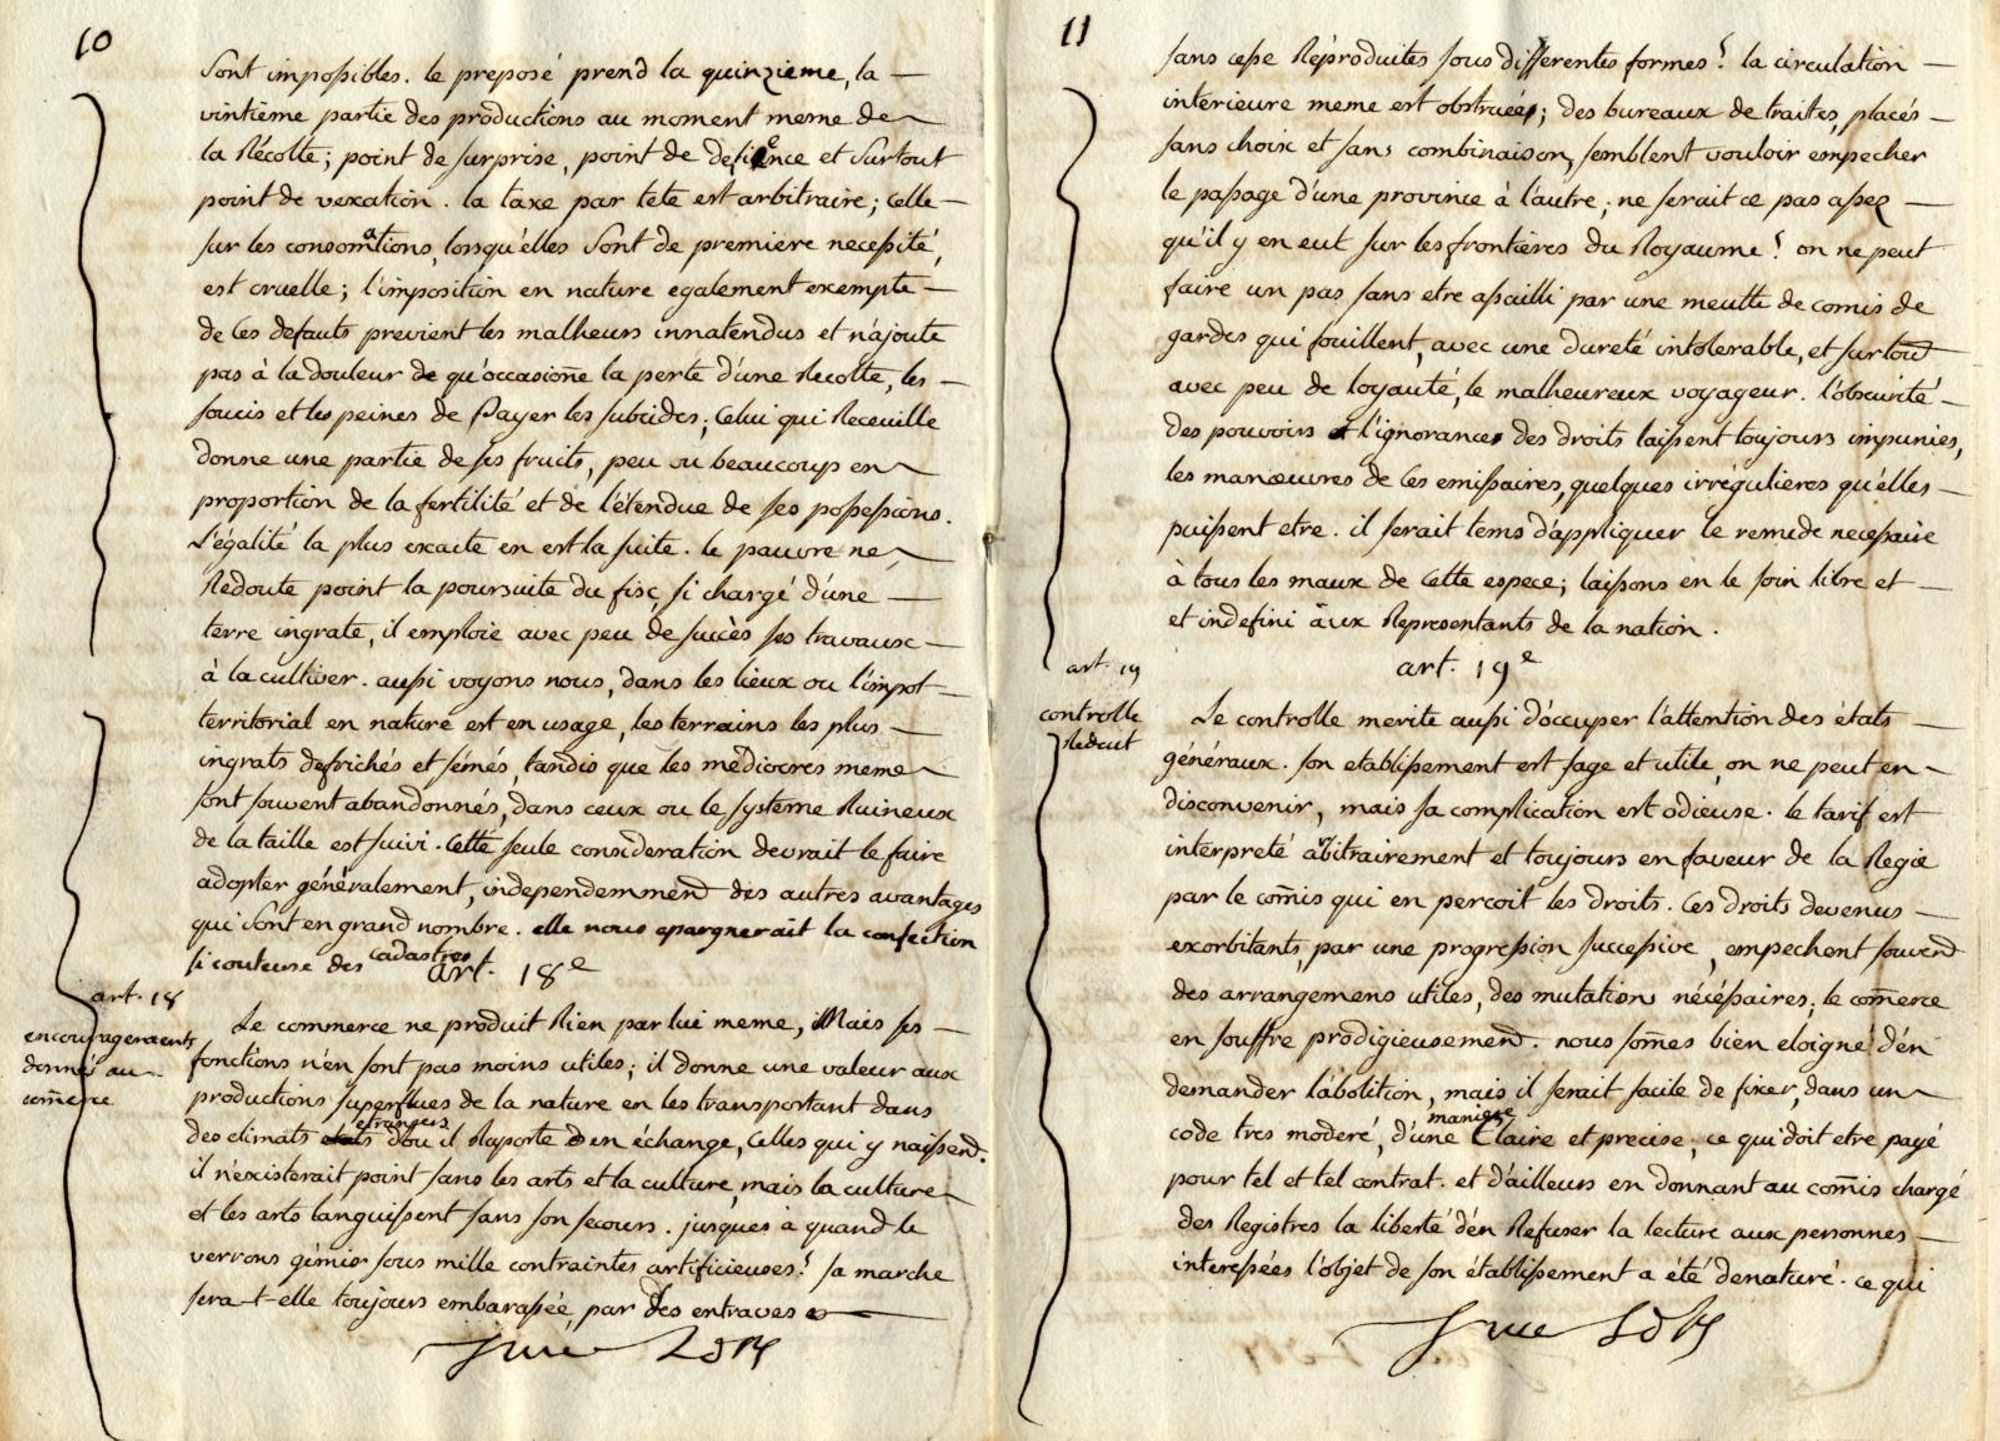 10
sont impossibles. le preposé prend la quinzieme, la
vintième partie des productions au moment meme de
la Récolte; point de surprise, point de defience et surtout
point de vexation. la taxe par tete est arbitraire; celle
sur les consomations, lorsqu'elles sont de premiere necessité,
est cruelle; l'imposition en nature egalement exempte
de ces defauts previent les malheurs innatendus et n'ajoute
pas à la douleur de qu'occasione la perte d'une Recolte, les
soucis et les peines de Payer les subsides; celui qui Receuille
donne une partie de ses fruits, peu ou beaucoup en
proportion de la fertilité et de l'étendue de ses possessions.
L'égalité la plus exacte en est la suite. le pauvre ne
Redoute point la poursuite du fisc, si chargé d'une
terre ingrate, il emploie avec peu de succès ses travaux
à la cultiver. aussi voyons nous, dans les lieux ou l'impot
territorial en nature est en usage, les terrains les plus
ingrats defrichés et sémés, tandis que les mediocres meme
sont souvent abandonnés, dans ceux ou le systeme Ruineux
de la taille est suivi. Cette seule consideration devrait le faire
adopter généralement, independemment des autres avantages
qui sont en grand nombre. elle nous epargnerait la confection
si couteuse des cadastres
art. 18e
art. 18
encouragements
donnés au
comerce
Le commerce ne produit Rien par lui meme, Mais ses
fonctions n'en sont pas moins utiles; il donne une valeur aux
productions superflues de la nature en les transportant dans
des climats etrangers d'ou il Raporte en échange, celles qui y naissent.
il n'existerait point sans les arts et la culture, mais la culture
et les arts languissent sans son secours. jusques à quand le
verrons gémir sous mille contraintes artificieuses? sa marche
sera-t-elle toujours embarassée, par des entraves
11
sans cesse Réproduites sous differentes formes? la circulation
interieure meme est obstruée; des bureaux de traites, placés
sans choix et sans combinaison, semblent vouloir empecher
le passage d'une province à l'autre; ne serait ce pas assez
qu'il y en eut sur les frontières du Royaume? on ne peut
faire un pas sans etre assailli par une meutte de comis de
gardes qui fouillent, avec une dureté intolerable, et surtout
avec peu de loyauté, le malheureux voyageur. l'obscurité
des pouvoirs et l'ignorance des droits laissent toujours impunies,
les manœuvres de ces emissaires, quelques irrégulieres qu'elles
puissent etre. il serait tems d'appliquer le remede necessaire
à tous les maux de cette espece; laissons en le soin libre et
et indefini aux Representants de la nation.
art. 19e
art. 19
controlle
Reduit
Le controlle merite aussi d'occuper l'attention des états
généraux. son etablissement est sage et utile, on ne peut en
disconvenir, mais sa complication est odieuse. le tarif est
interpreté arbitrairement et toujours en faveur de la Regie
par le com̄is qui en percoit les droits. Ces droits devenus
exorbitants, par une progression successive, empechent souvent
des arrangemens utiles, des mutations nécéssaires; le com̄erce
en souffre prodigieusement. nous som̄es bien eloigné d'en
demander l'abolition, mais il serait facile de fixer, dans un
code tres moderé, d'une maniere Claire et precise, ce qui doit etre payé
pour tel et tel contrat. et d'ailleurs en donnant au com̄is chargé
des Registres la liberté d'en Refuser la lecture aux personnes
interessées l'objet de son établissement a été denaturé. ce qui